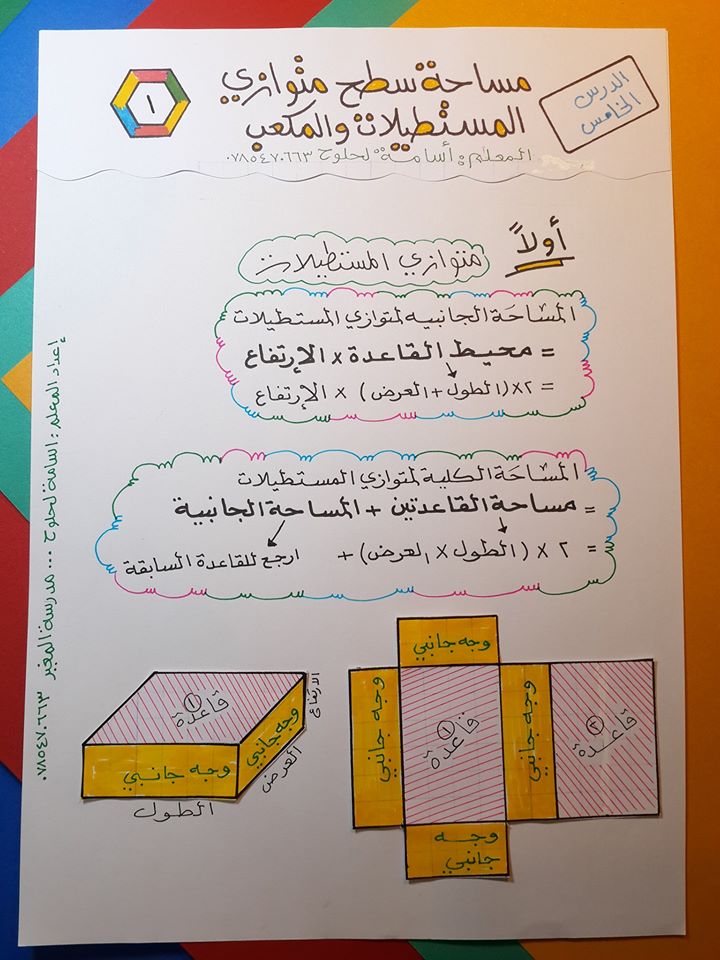 الدرس
الخامس
مساحة سطح متوازي
المستطيلات والمكعب
١
المعلم: أسامة لحلوح ٠٧٨٥٤٧٠٦٦٣
أولاً
متوازي المستطيلات
المساحة الجانبيه لمتوازي المستطيلات
= محيط القاعدة × الإرتفاع
= ٢×(الطول + العرض) × الإرتفاع
المساحة الكلية لمتوازي المستطيلات
= مساحة القاعدتين + المساحة الجانبية
= ٢ × (الطول × العرض) + ارجع للقاعدة السابقة
إعداد المعلم: اسامة لحلوح ... مدرسة المغير ٠٧٨٥٤٧٠٦٦٣
قاعدة ١
وجه جانبي
وجه جانبي
الطول
العرض
الارتفاع
وجه جانبي
وجه جانبي
قاعدة ١
وجه جانبي
قاعدة ٢
وجه
جانبي